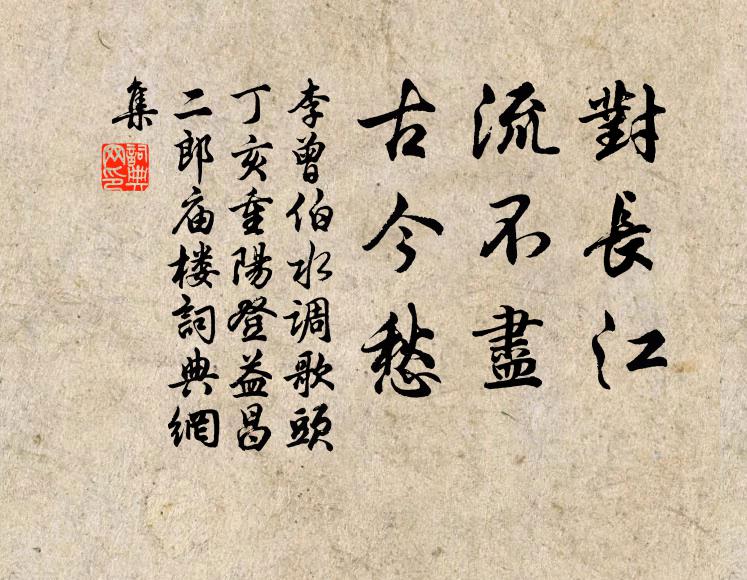 對長江
流不盡
古今愁
李曾伯水调歌頭
丁亥重陽登益昌
二郎庙楼詞典網
集
詞典網印